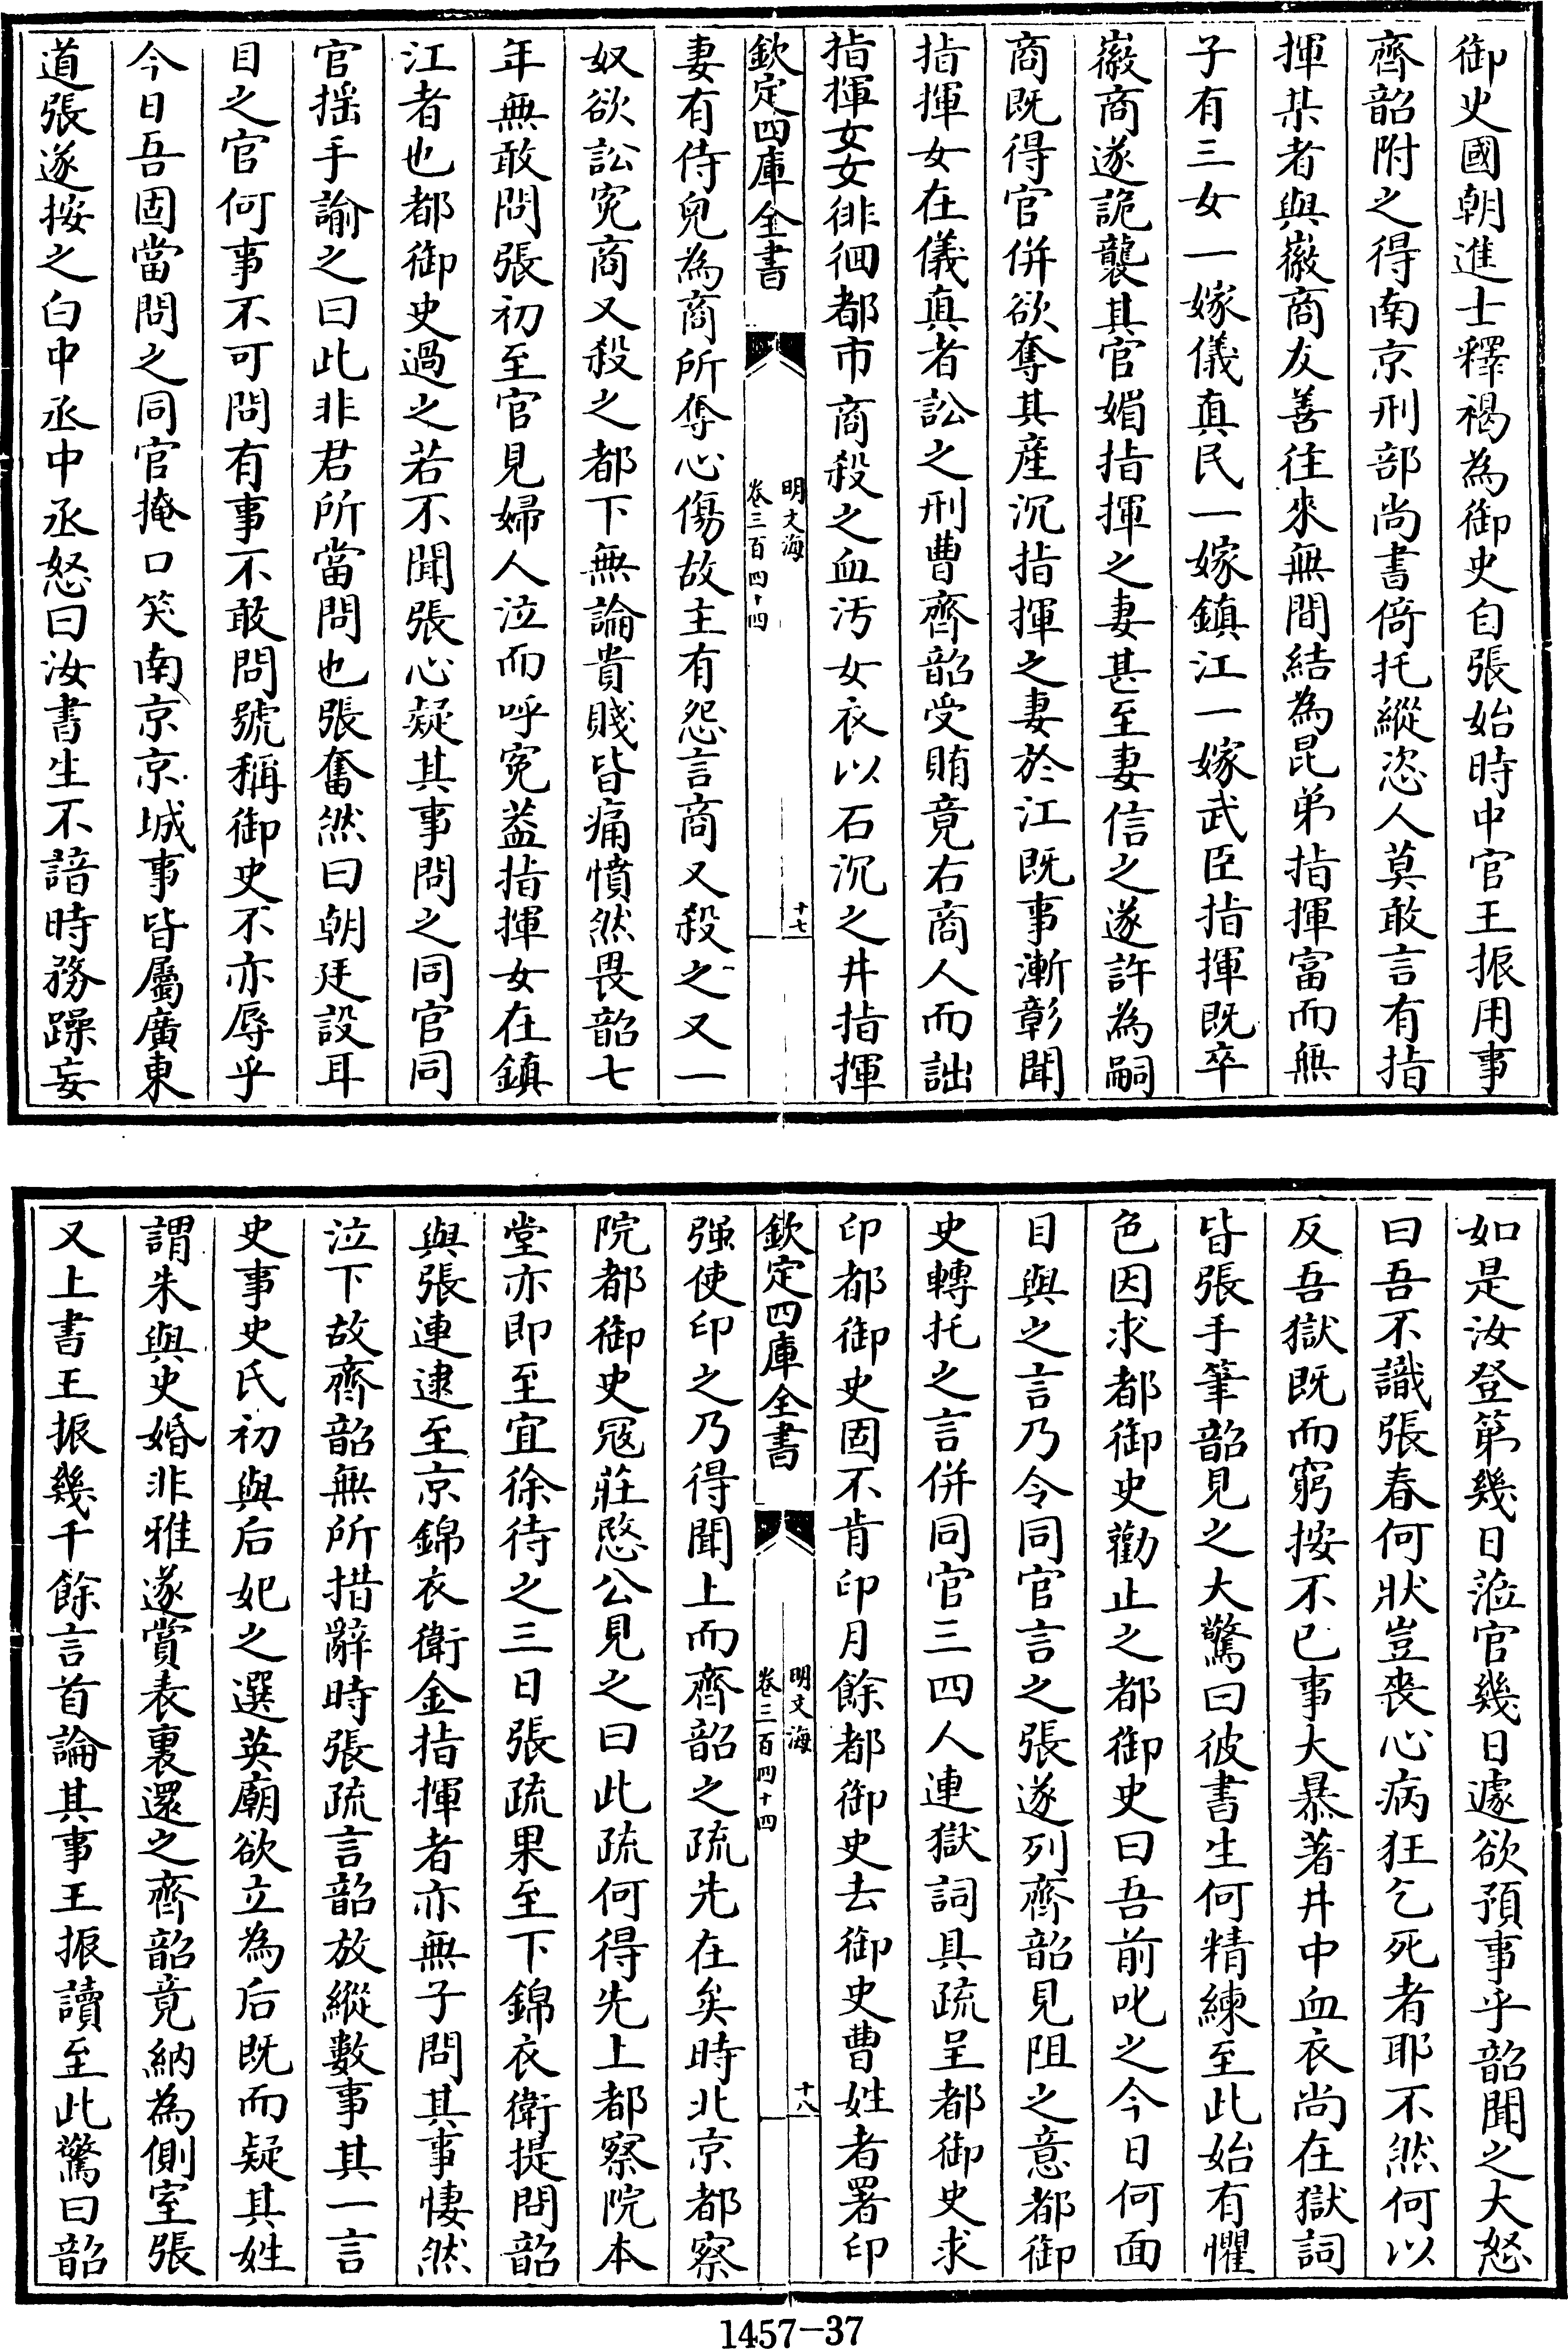 御史國朝進士釋褐為御史自張始時中官王振用事
齊韶附之得南京刑部尚書倚托縱恣人莫敢言有指
揮某者與徽商友善往來無間結為昆弟指揮富而無
子有三女一嫁儀真民一嫁鎮江一嫁武臣指揮既卒
徽商遂詭襲其官媚指揮之妻甚至妻信之遂許為嗣
商既得官併欲奪其產沉指揮之妻於江既事漸彰聞
指揮女在儀真者訟之刑曹齊韶受賄竟右商人而詘
指揮女女徘徊都市商殺之血污女衣以石沉之井指揮
欽定四庫全書
明文海
卷三百四十四
十七
妻有侍兒為商所奪心傷故主有怨言商又殺之又一
奴欲訟寃商又殺之都下無論貴賤皆痛憤然畏韶七
年無敢問張初至官見婦人泣而呼寃葢指揮女在鎮
江者也都御史過之若不聞張心疑其事問之同官同
官揺手諭之曰此非君所當問也張奮然曰朝廷設耳
目之官何事不可問有事不敢問號稱御史不亦辱乎
今日吾固當問之同官掩口笑南京京城事皆屬廣東
道張遂按之白中丞中丞怒曰汝書生不諳時務躁妄
如是汝登第幾日蒞官幾日遽欲預事乎韶聞之大怒
曰吾不識張春何狀豈喪心病狂乞死者耶不然何以
反吾獄既而窮按不已事大暴著井中血衣尚在獄詞
皆張手筆韶見之大驚曰彼書生何精練至此始有懼
色因求都御史勸止之都御史曰吾前叱之今日何面
目與之言乃令同官言之張遂列齊韶見阻之意都御
史轉托之言併同官三四人連獄詞具疏呈都御史求
印都御史固不肯印月餘都御史去御史曹姓者署印
欽定四庫全書
明文海
卷三百四十四
十八
强使印之乃得聞上而齊韶之疏先在矣時北京都察
院都御史寇莊愍公見之曰此疏何得先上都察院本
堂亦即至宜徐待之三日張疏果至下錦衣衛提問韶
與張連逮至京錦衣衛金指揮者亦無子問其事悽然
泣下故齊韶無所措辭時張疏言韶放縱數事其一言
史事史氏初與后妃之選英廟欲立為后既而疑其姓
謂朱與史婚非雅遂賞表裏還之齊韶竟納為側室張
又上書王振幾千餘言首論其事王振讀至此驚曰韶
1457-37